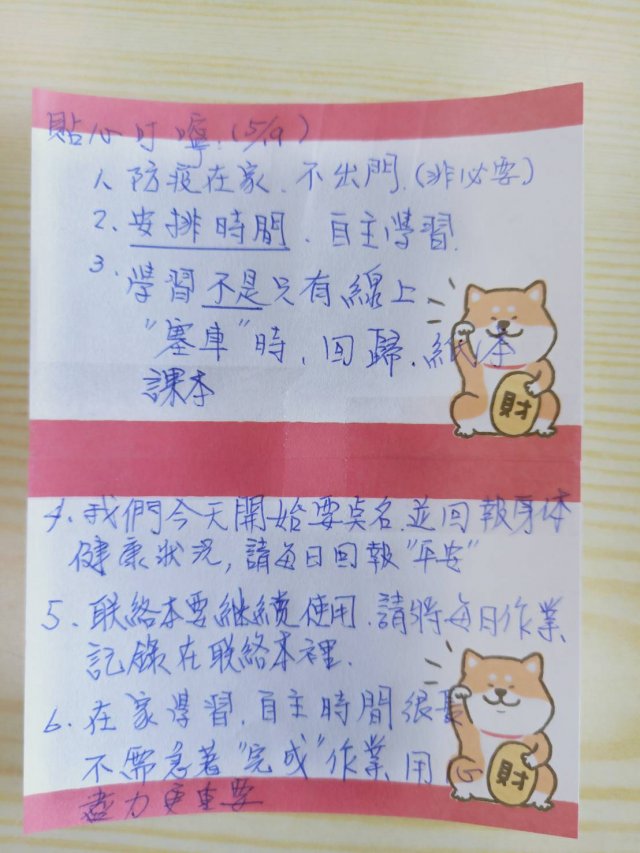 貼心叮嚀.(5/19)
1. 防疫在家.不出門.(非必要)
2. 安排時間.自主學習.
3. 學習不是只有線上
"塞車"時,回歸.紙本
課本
財
4. 我們今天開始要点名.並回報身体
健康狀況,請每日回報"平安"
5. 联絡本要継續使用.請將每日作業
記錄在联絡本裡.
6. 在家學習.自主時間很長
不需急著"完成"作業用心
盡力更重要
財